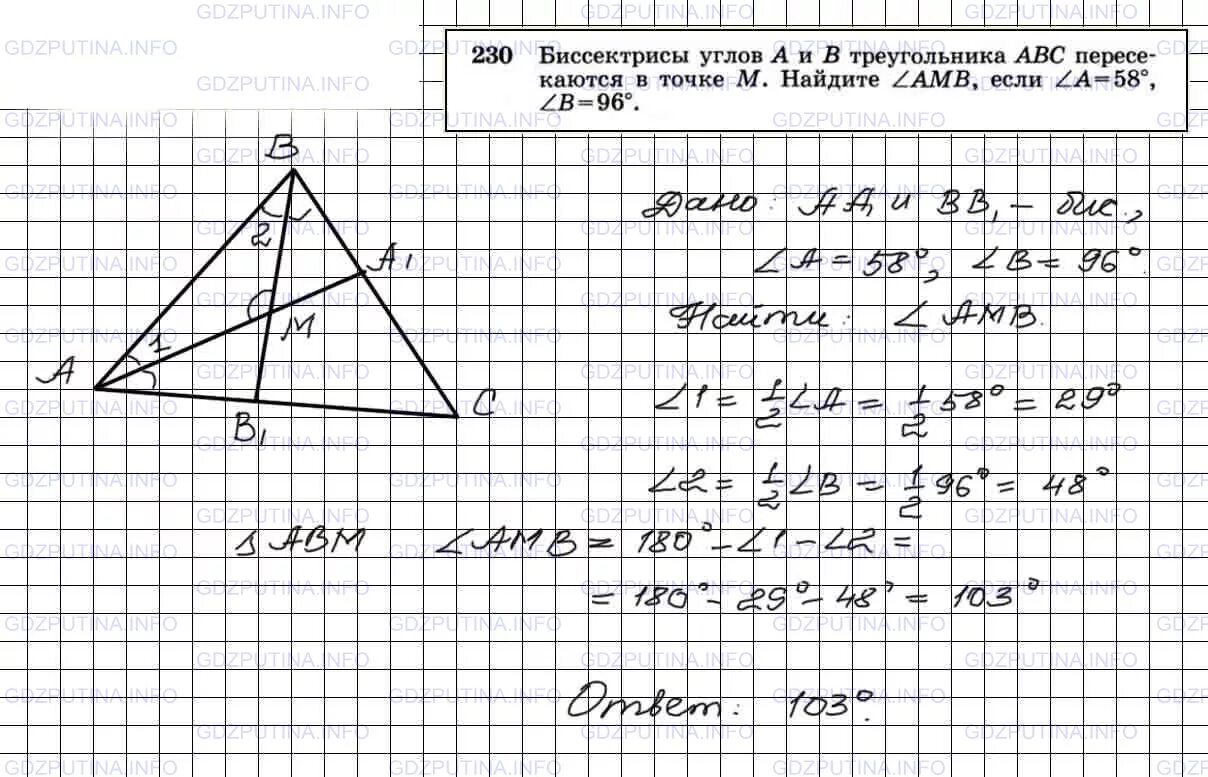 230 Биссектрисы углов A и B треугольника ABC пересе-
каются в точке M. Найдите ∠AMB, если ∠A=58°,
∠B=96°.
B
2
A₁
M
1
A
B₁
C
Дано: AA₁ и BB₁ – бис.,
∠A = 58°, ∠B = 96°.
Найти: ∠AMB.
∠1 = 1/2 ∠A = 1/2 58° = 29°
∠2 = 1/2 ∠B = 1/2 96° = 48°
△ ABM ∠AMB = 180° – ∠1 – ∠2 =
= 180° – 29° – 48° = 103°
Ответ: 103°.
GDZPUTINA.INFO